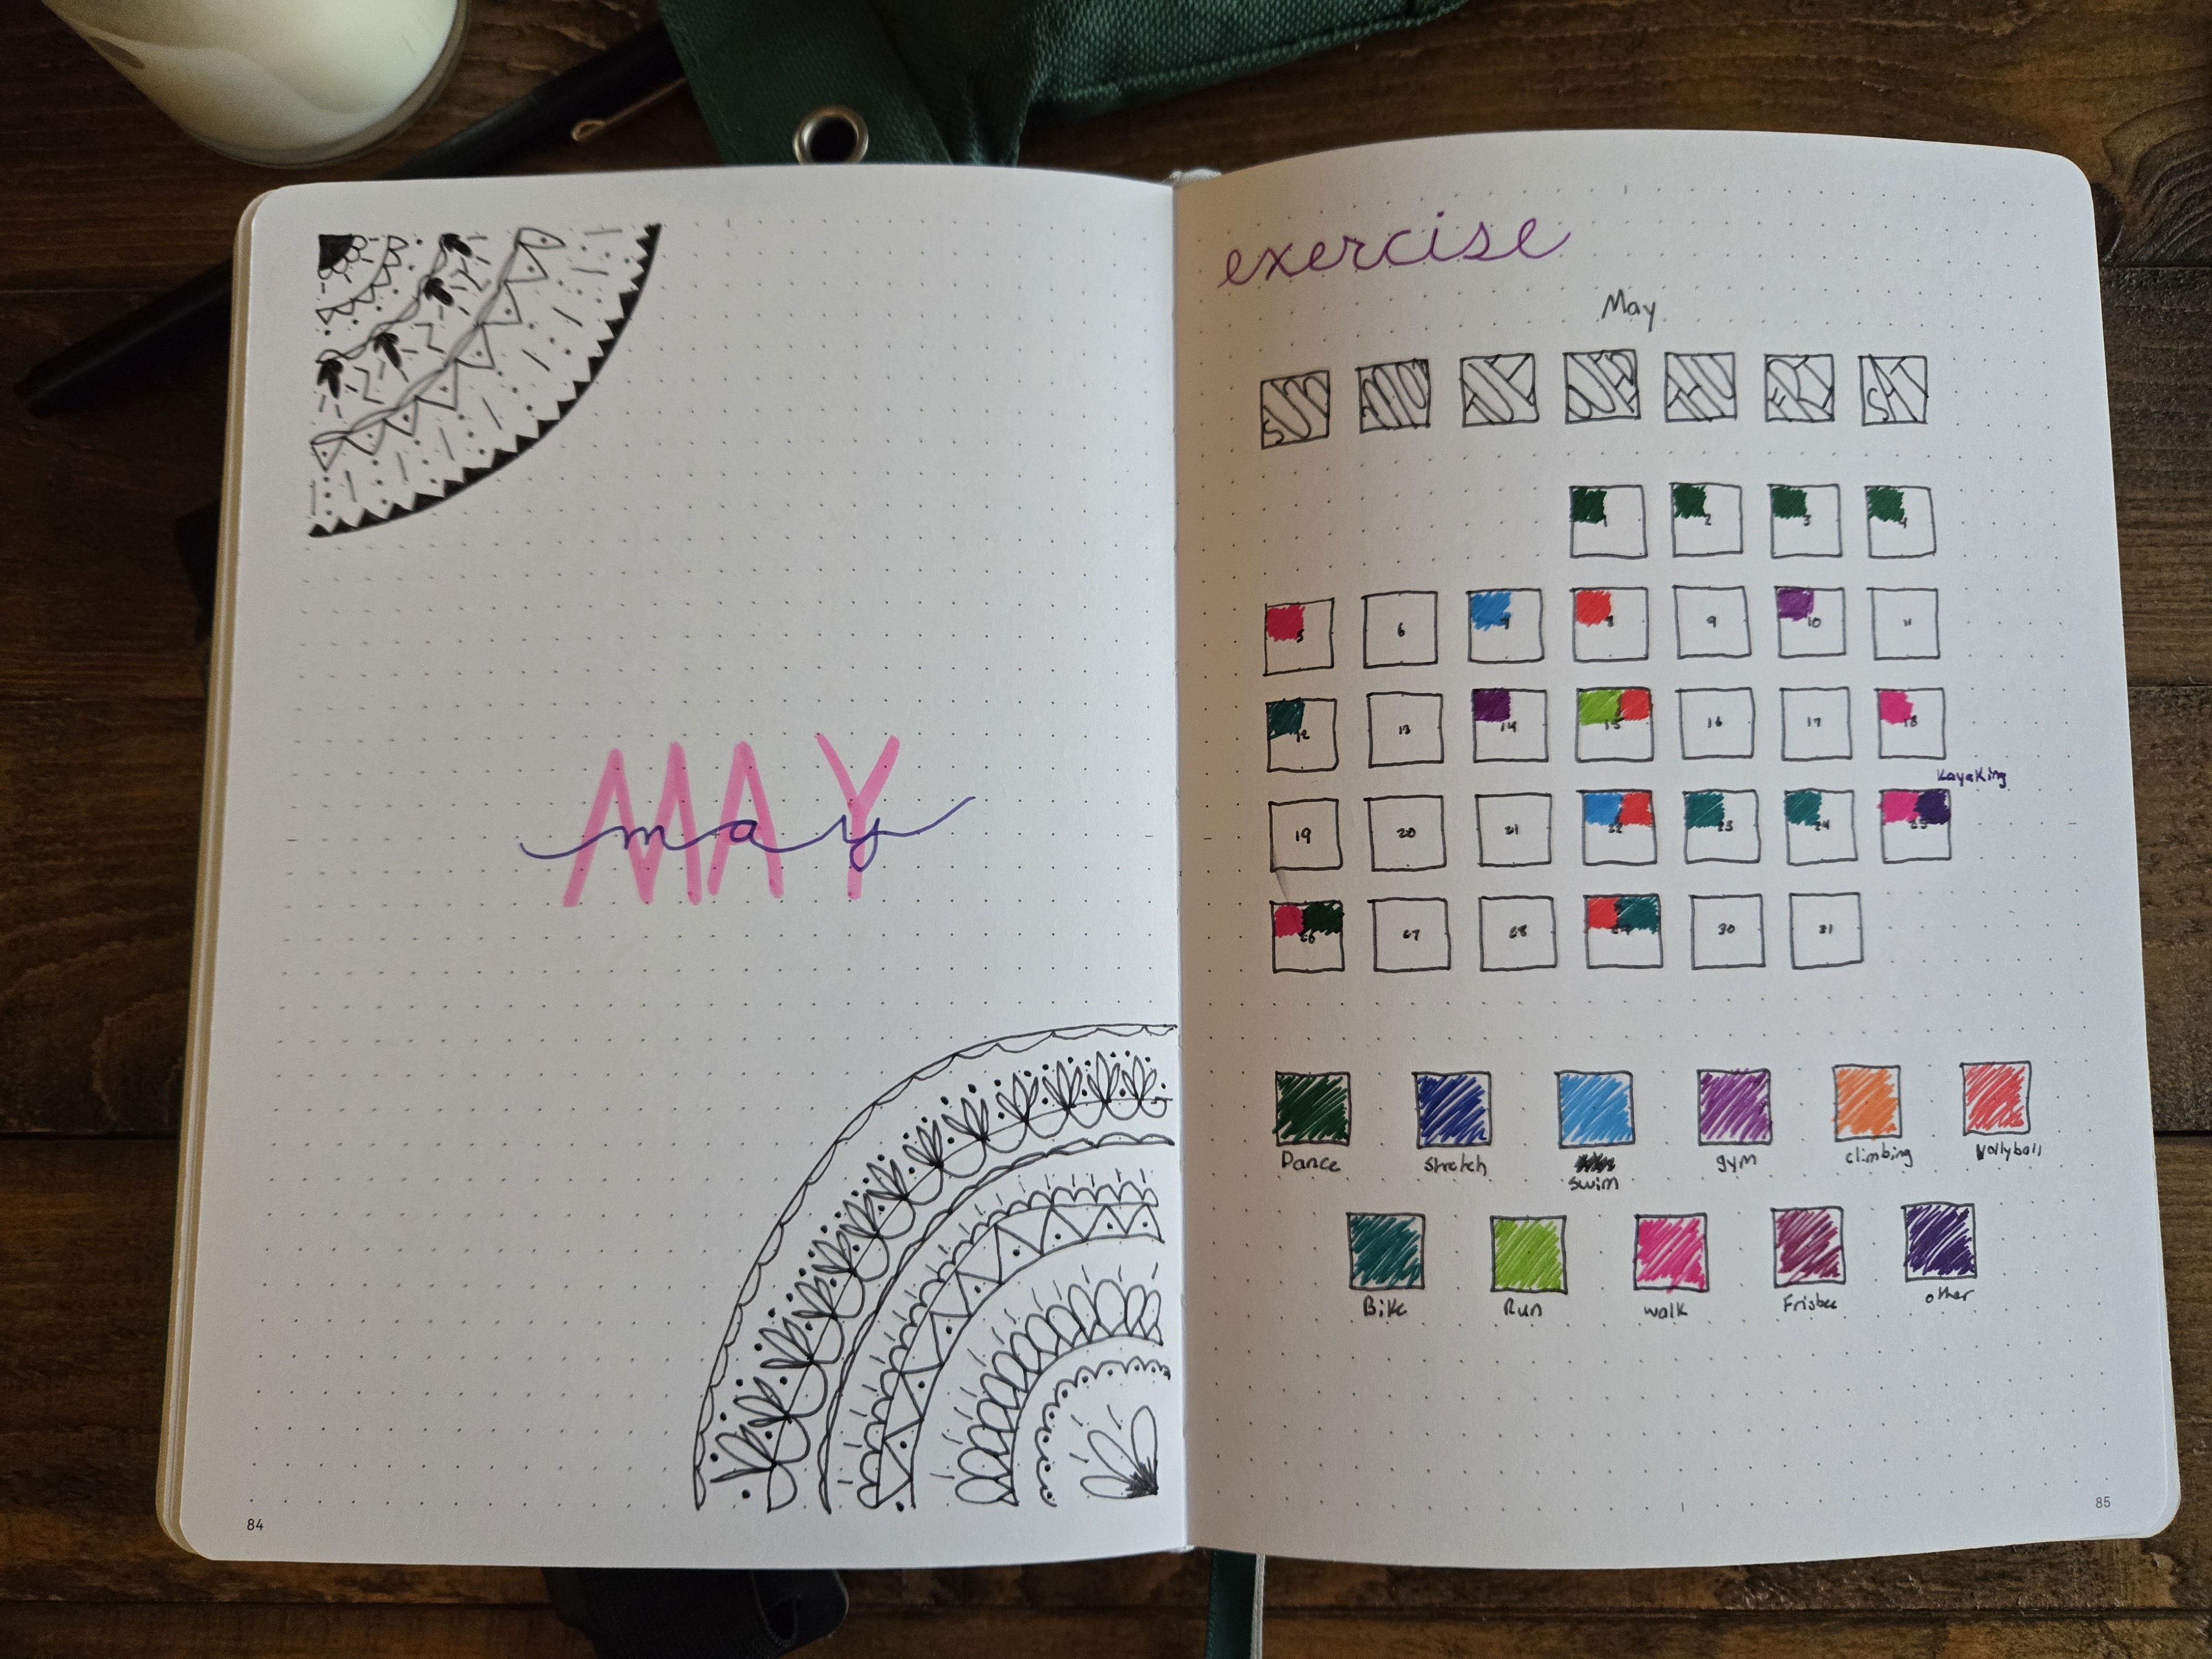 MAY
may
84
exercise
May
SUN MON TUE WED THU FRI SAT
1 2 3 4
5 6 7 8 9 10 11
12 13 14 15 16 17 18
Kayaking
19 20 21 22 23 24 25
26 27 28 29 30 31
Dance stretch swim gym climbing Vollyball
Bike Run walk Frisbee other
85